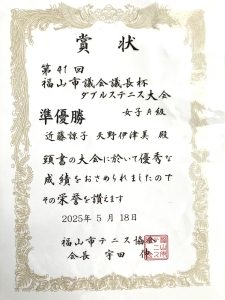 賞状
第41回
福山市議会議長杯
ダブルステニス大会
準優勝
女子A級
近藤諒子 天野伊津美 殿
頭書の大会に於いて優秀な
成績をおさめられましたので
その栄誉を讃えます
2025年5月18日
福山市テニス協会
会長 宇田 伸